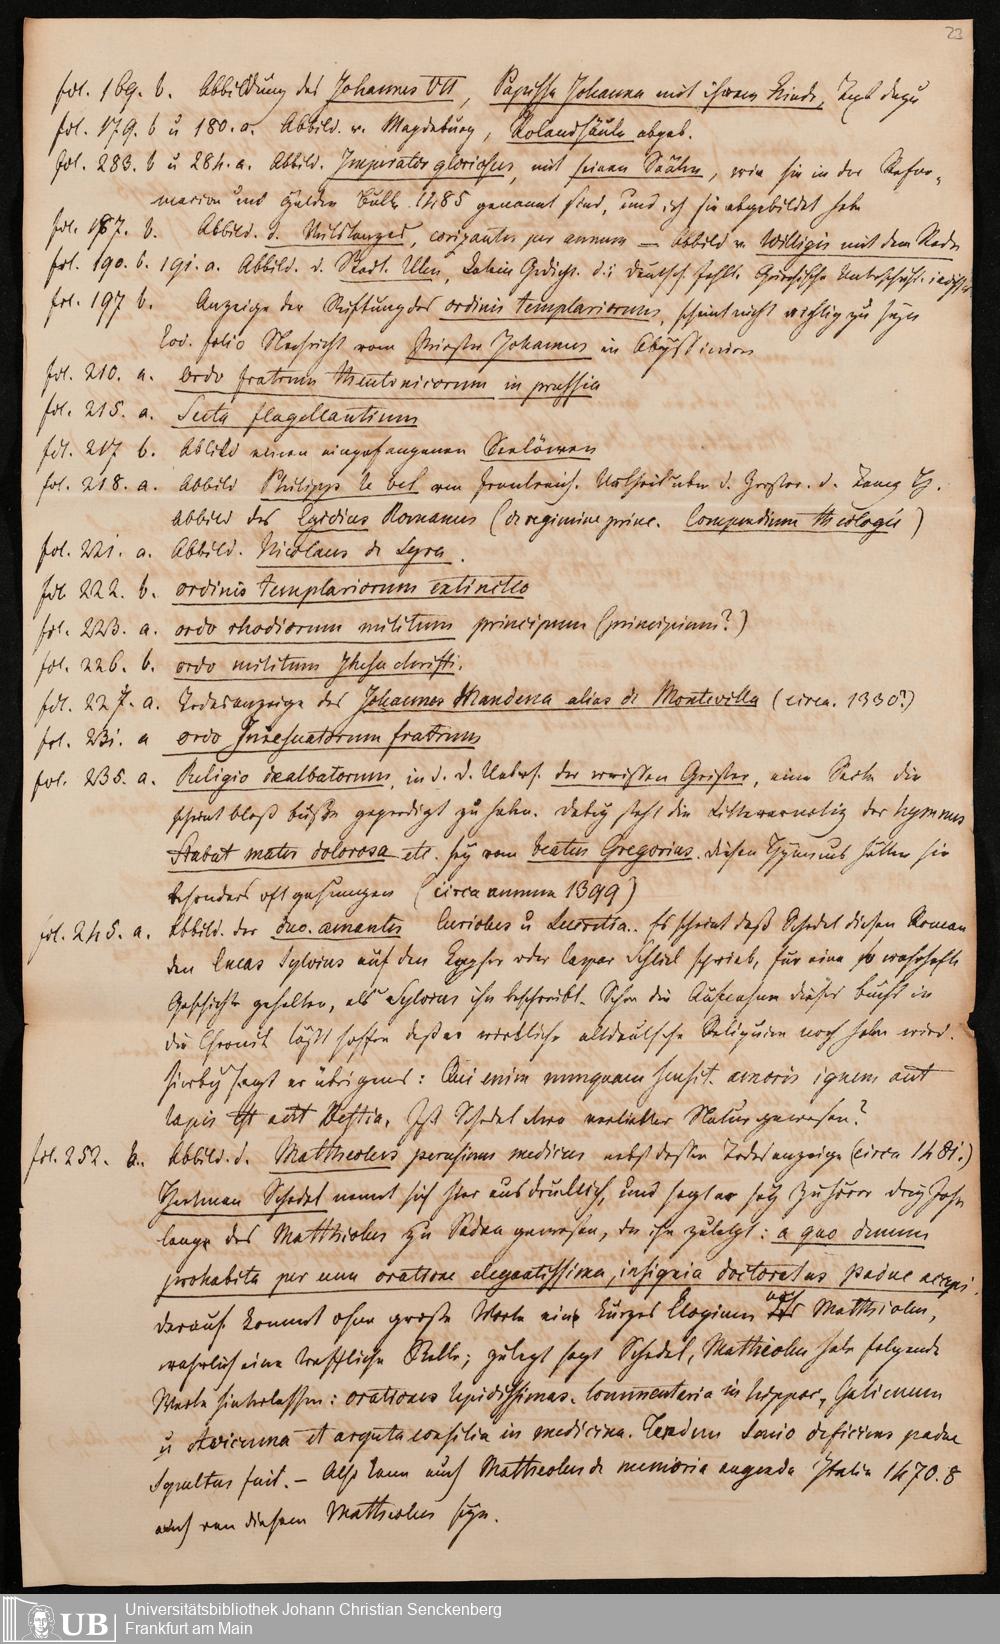 23
fol. 169. b. Abbildung des Johannes VII, Papissa Johanna mit ihrem Kinde, Text dazu
fol. 179. b u 180. a. Abbild. v. Magdeburg, Rolandsäule abgeb.
fol. 283. b u 284. a. Abbild. Imperator gloriosus, mit seinen Säulen, wie sie in der Refor-
mation und Gulden Bulle 1485 genannt sind, und ich sie abgebildet habe
fol. 187. b. Abbild. d. corizantes per annum — Abbild v. Willigis mit dem Rade
fol. 190. b. 191. a. Abbild. d. Stadt Ulm, Latein Gedicht. d. i deutsch fehlt.
fol. 197 b. Anzeige der Stiftung des ordinis templariorum, scheint nicht richtig zu seyn
Eod. folio Nachricht vom Priester Johannes in Abyssinien
fol. 210. a. ordo fratrum theutonicorum in prussia
fol. 215. a. Secta flagellantium
fol. 217 b. Abbild eines eingefangenen Seelöwen
fol. 218. a. Abbild Philipps le bel von Frankreich. Urtheil über d.
Abbild des Egidius Romanus (de regimine princ. Compendium theologie)
fol. 221. a. Abbild. Nicolaus de Lyra.
fol. 222. b. ordinis templariorum extinctio
fol. 223. a. ordo rhodiorum militum principum (principium?)
fol. 226. b. ordo militum Jhesu christi.
fol. 227. a. Todesanzeige des Johannes Mandevla alias de Montevilla (circa. 1330?)
fol. 231. a ordo Jhesuatorum fratrum
fol. 235. a. Religio dealbatorum, in d. d. Uebers. der weissen Geister, eine Secte die
scheint bloß buße gepredigt zu haben. Dabey steht die Litterarnotiz der hymnus
Stabat mater dolorosa etc. sey vom beatus Gregorius. diesen Hymnus hätten sie
besonders oft gesungen (circa annum 1399)
fol. 245. a. Abbild. der duo. amantes Euriolus u Lucretia. Es scheint daß Schedel diesen Roman
den Eneas Sylvius auf den Kanzler oder Caspar Schlick schrieb, für eine so wahrhafte
Geschichte gehalten, als Sylvius ihn beschreibt. Schon die Aufnahme dieses buchs in
die Chronik läßt hoffen daß er wirkliche altdeutsche Reliquien noch haben wird.
hierbey sagt er übrigens: Qui enim nunquam sensit. amoris ignem aut
lapis est aut bestia. Ist Schedel also verliebter Natur gewesen?
fol. 252. b. Abbild. d. Matheolus perusinus medicus nebst dessen Todesanzeige (circa 1481.)
Hartman Schedel nennt sich hier ausdrücklich, und sagt er sey Zuhörer drey Jahr
lange des Matthiolus zu Padua gewesen, der ihn zuletzt: a quo demum
prohabita per eum oratione elegantissima, insignia doctoratus padue accepi.
darauf kommt ohne große Worte ein kurzes Elogium auf Matthiolus,
wahrlich eine treffliche Stelle; zuletzt sagt Schedel, Matheolus habe folgende
Werke hinterlassen: orationes lepidissimas. Commentaria in hippocr, Galienum
u Avicenna et arguta consilia in medicina. Tandem senio deficiens padue
sepultus fuit. — Also kann auch Matheolus de memoria augenda Italia 1470. 8
auch von diesem Matheolus seyn.
UB Universitätsbibliothek Johann Christian Senckenberg
Frankfurt am Main